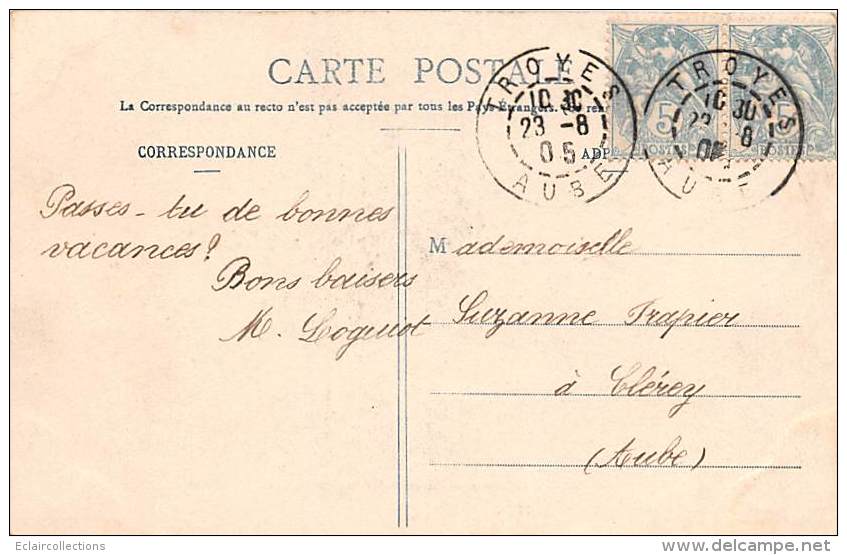 CARTE POSTALE
La Correspondance au recto n'est pas acceptée par tous les Pays Étrangers.
CORRESPONDANCE
TROYES
10 30
23 -8
05
AUBE
TROYES
10 30
-8
5
POSTES
5
POSTES
Passes-tu de bonnes
vacances?
Bons baisers
M. Loguiot
Mademoiselle
Suzanne Frapier
à Clérey
(Aube)
Eclaircollections
www.delcampe.net